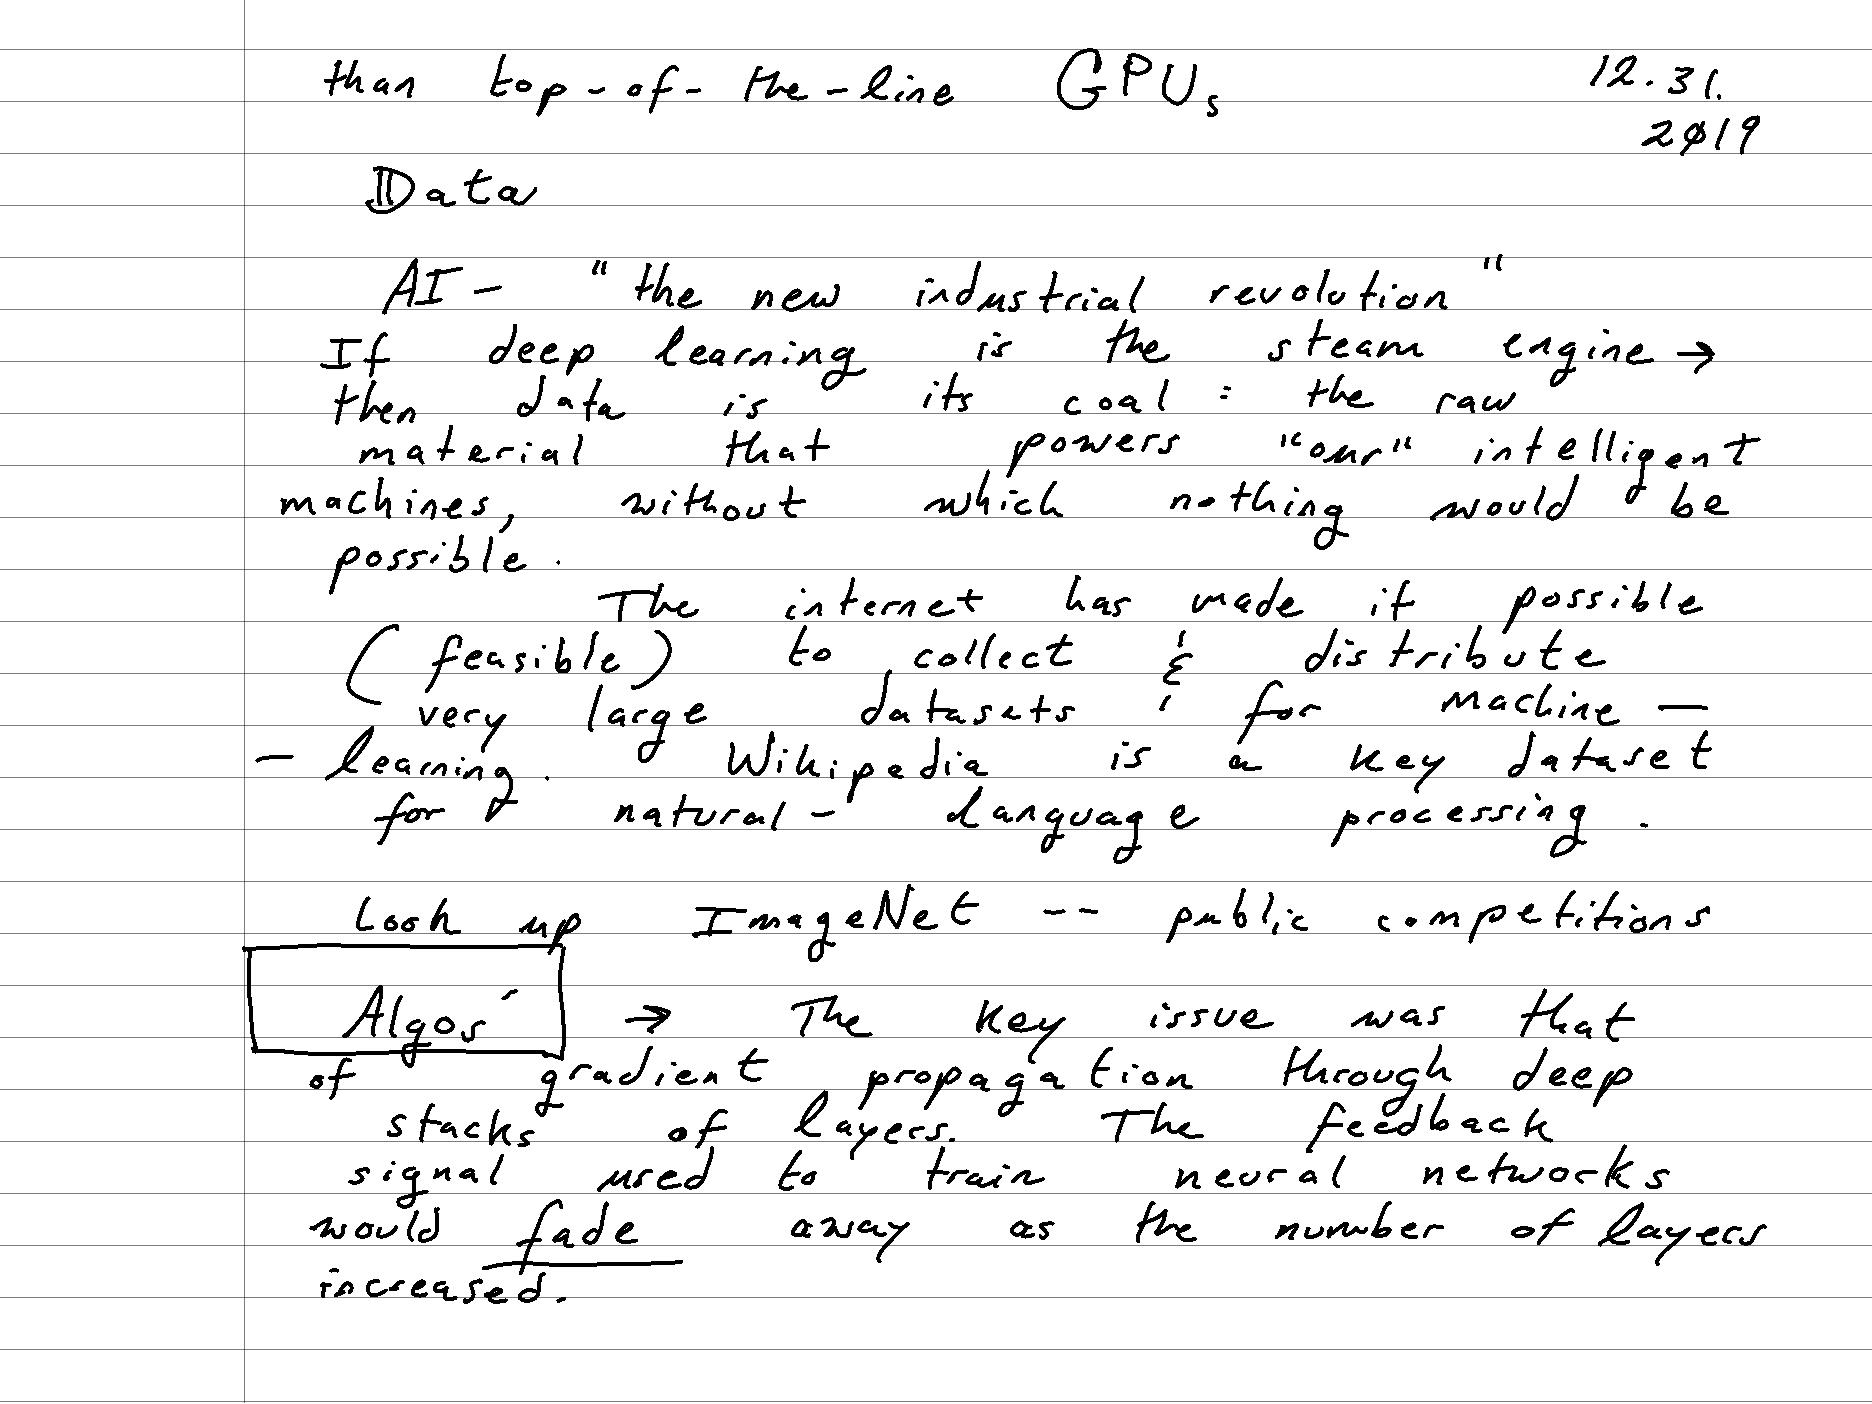 than top-of-the-line GPUs 12.31.
2019
Data
AI - "the new industrial revolution"
If deep learning is the steam engine →
then data is its coal : the raw
material that powers "our" intelligent
machines, without which nothing would be
possible.
The internet has made it possible
(feasible) to collect & distribute
very large datasets for machine -
- learning. Wikipedia is a key dataset
for natural - language processing.
Look up ImageNet -- public competitions
Algos → The key issue was that
of gradient propagation through deep
stacks of layers. The feedback
signal used to train neural networks
would fade away as the number of layers
increased.